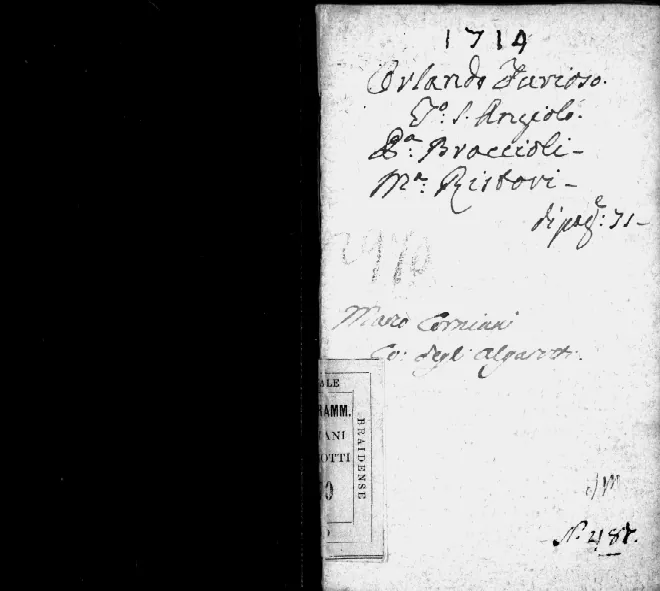 1714
Orlando Furioso.
To: S. Angiolo.
Pa: Braccioli-
Ma: Ristori-
di page: 71-
Marco Corniani
Co: degli Algarotti.
ALE
RAMM.
IANI
OTTI
BRAIDENSE
No. 487.